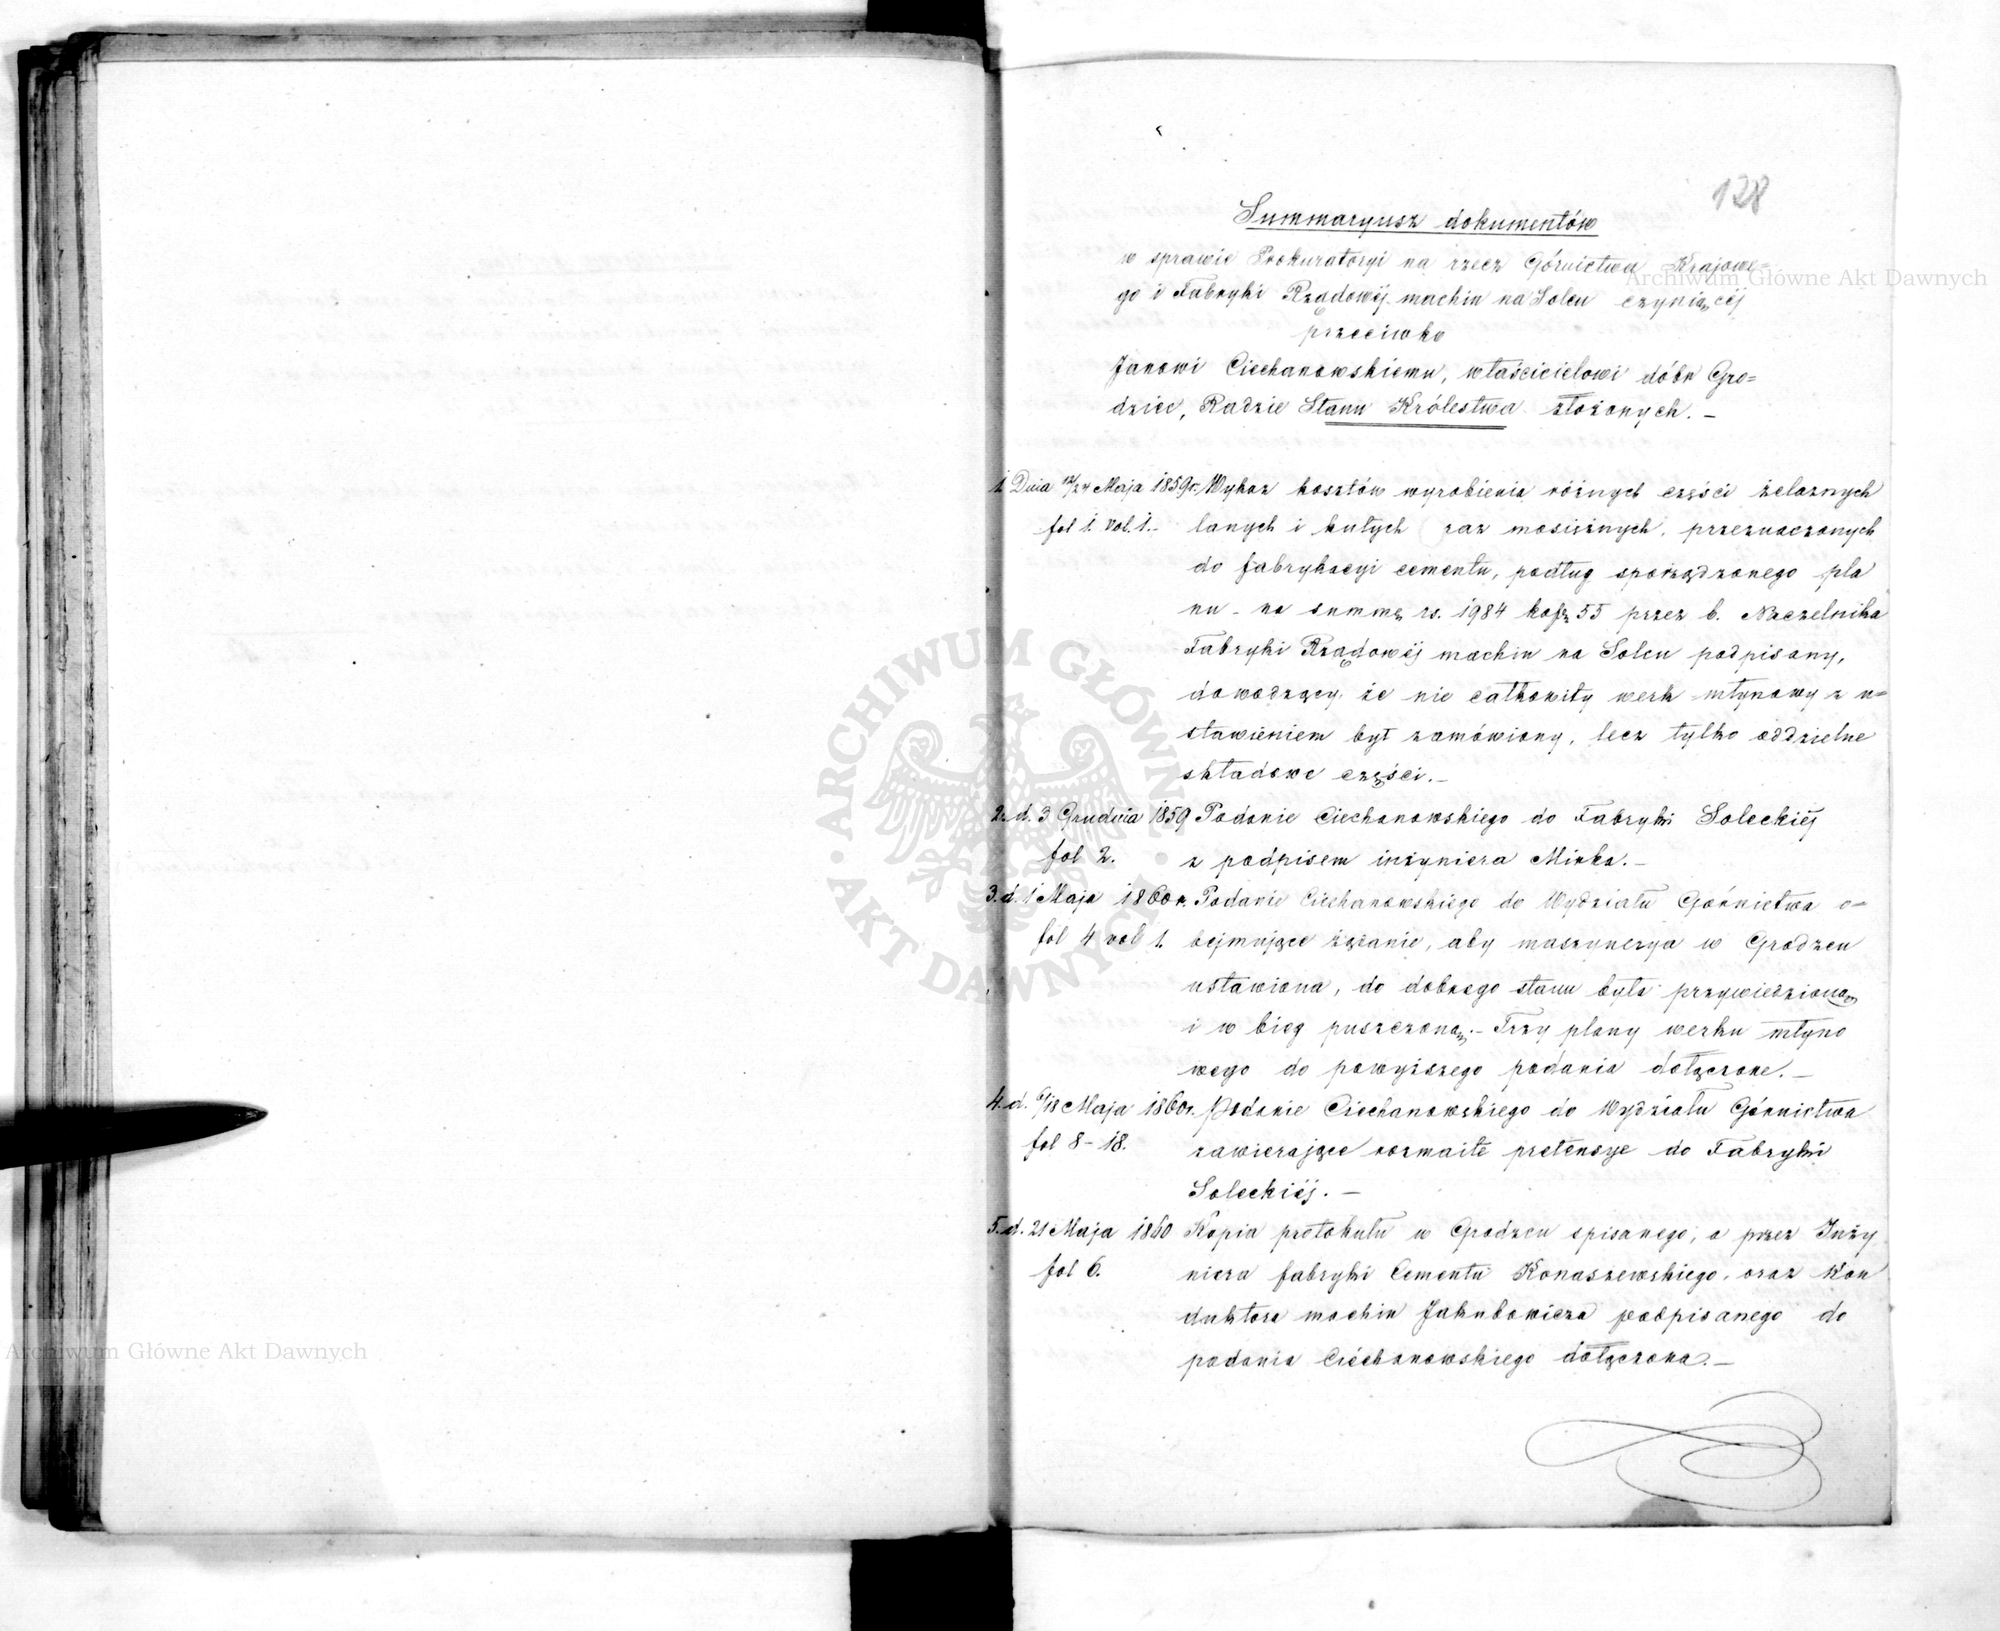 128
Summaryusz dokumentów
w sprawie Prokuratoryi na rzecz Górnictwa Krajowe=
go i Fabryki Rządowéj machin na Solcu czyniącéj
przeciwko
Janowi Ciechanowskiemu, właścicielowi dóbr Gro=
dziec, Radzie Stanu Królestwa złożonych. –
1. Dnia 12/24 Maja 1859 r. Wykaz kosztów wyrobienia różnych części żelaznych
fol 1. vol. 1. – lanych i kutych zaz mosiężnych, przeznaczonych
do fabrykacyi cementu, podług sporządzonego pla
nu – na summę rs. 1984 kop 55 przez b. Naczelnika
Fabryki Rządowéj machin na Solcu podpisany,
dowodzący, że nie całkowity werk młynowy z u=
stawieniem był zamówiony, lecz tylko oddzielne
składowe części. –
2. d. 3 Grudnia 1859 Podanie Ciechanowskiego do Fabryki Soleckiéj
fol 2. z podpisem inżyniera Minka. –
3. d. 1 Maja 1860 r. Podanie Ciechanowskiego do Wydziału Górnictwa o=
fol 4 vol 1. bejmujące żądanie, aby maszynerya w Grodzcu
ustawiona, do dobrego stanu była przywiedzioną
i w bieg puszczoną. – Trzy plany werku młyno
wego do powyższego podania dołączone. –
4. d. 6/18 Maja 1860 r. Podanie Ciechanowskiego do Wydziału Górnictwa
fol 8 – 18. zawierające rozmaite pretensye do Fabryki
Soleckiéj. –
5. d. 21 Maja 1860 Kopia protokułu w Grodzcu spisanego, a przez Inży
fol 6. niera fabryki Cementu Konaszewskiego, oraz Kon
duktora machin Jakubowicza podpisanego do
podania Ciechanowskiego dołączona. –
Archiwum Główne Akt Dawnych
ARCHIWUM GŁÓWNE · AKT DAWNYCH ·
Archiwum Główne Akt Dawnych